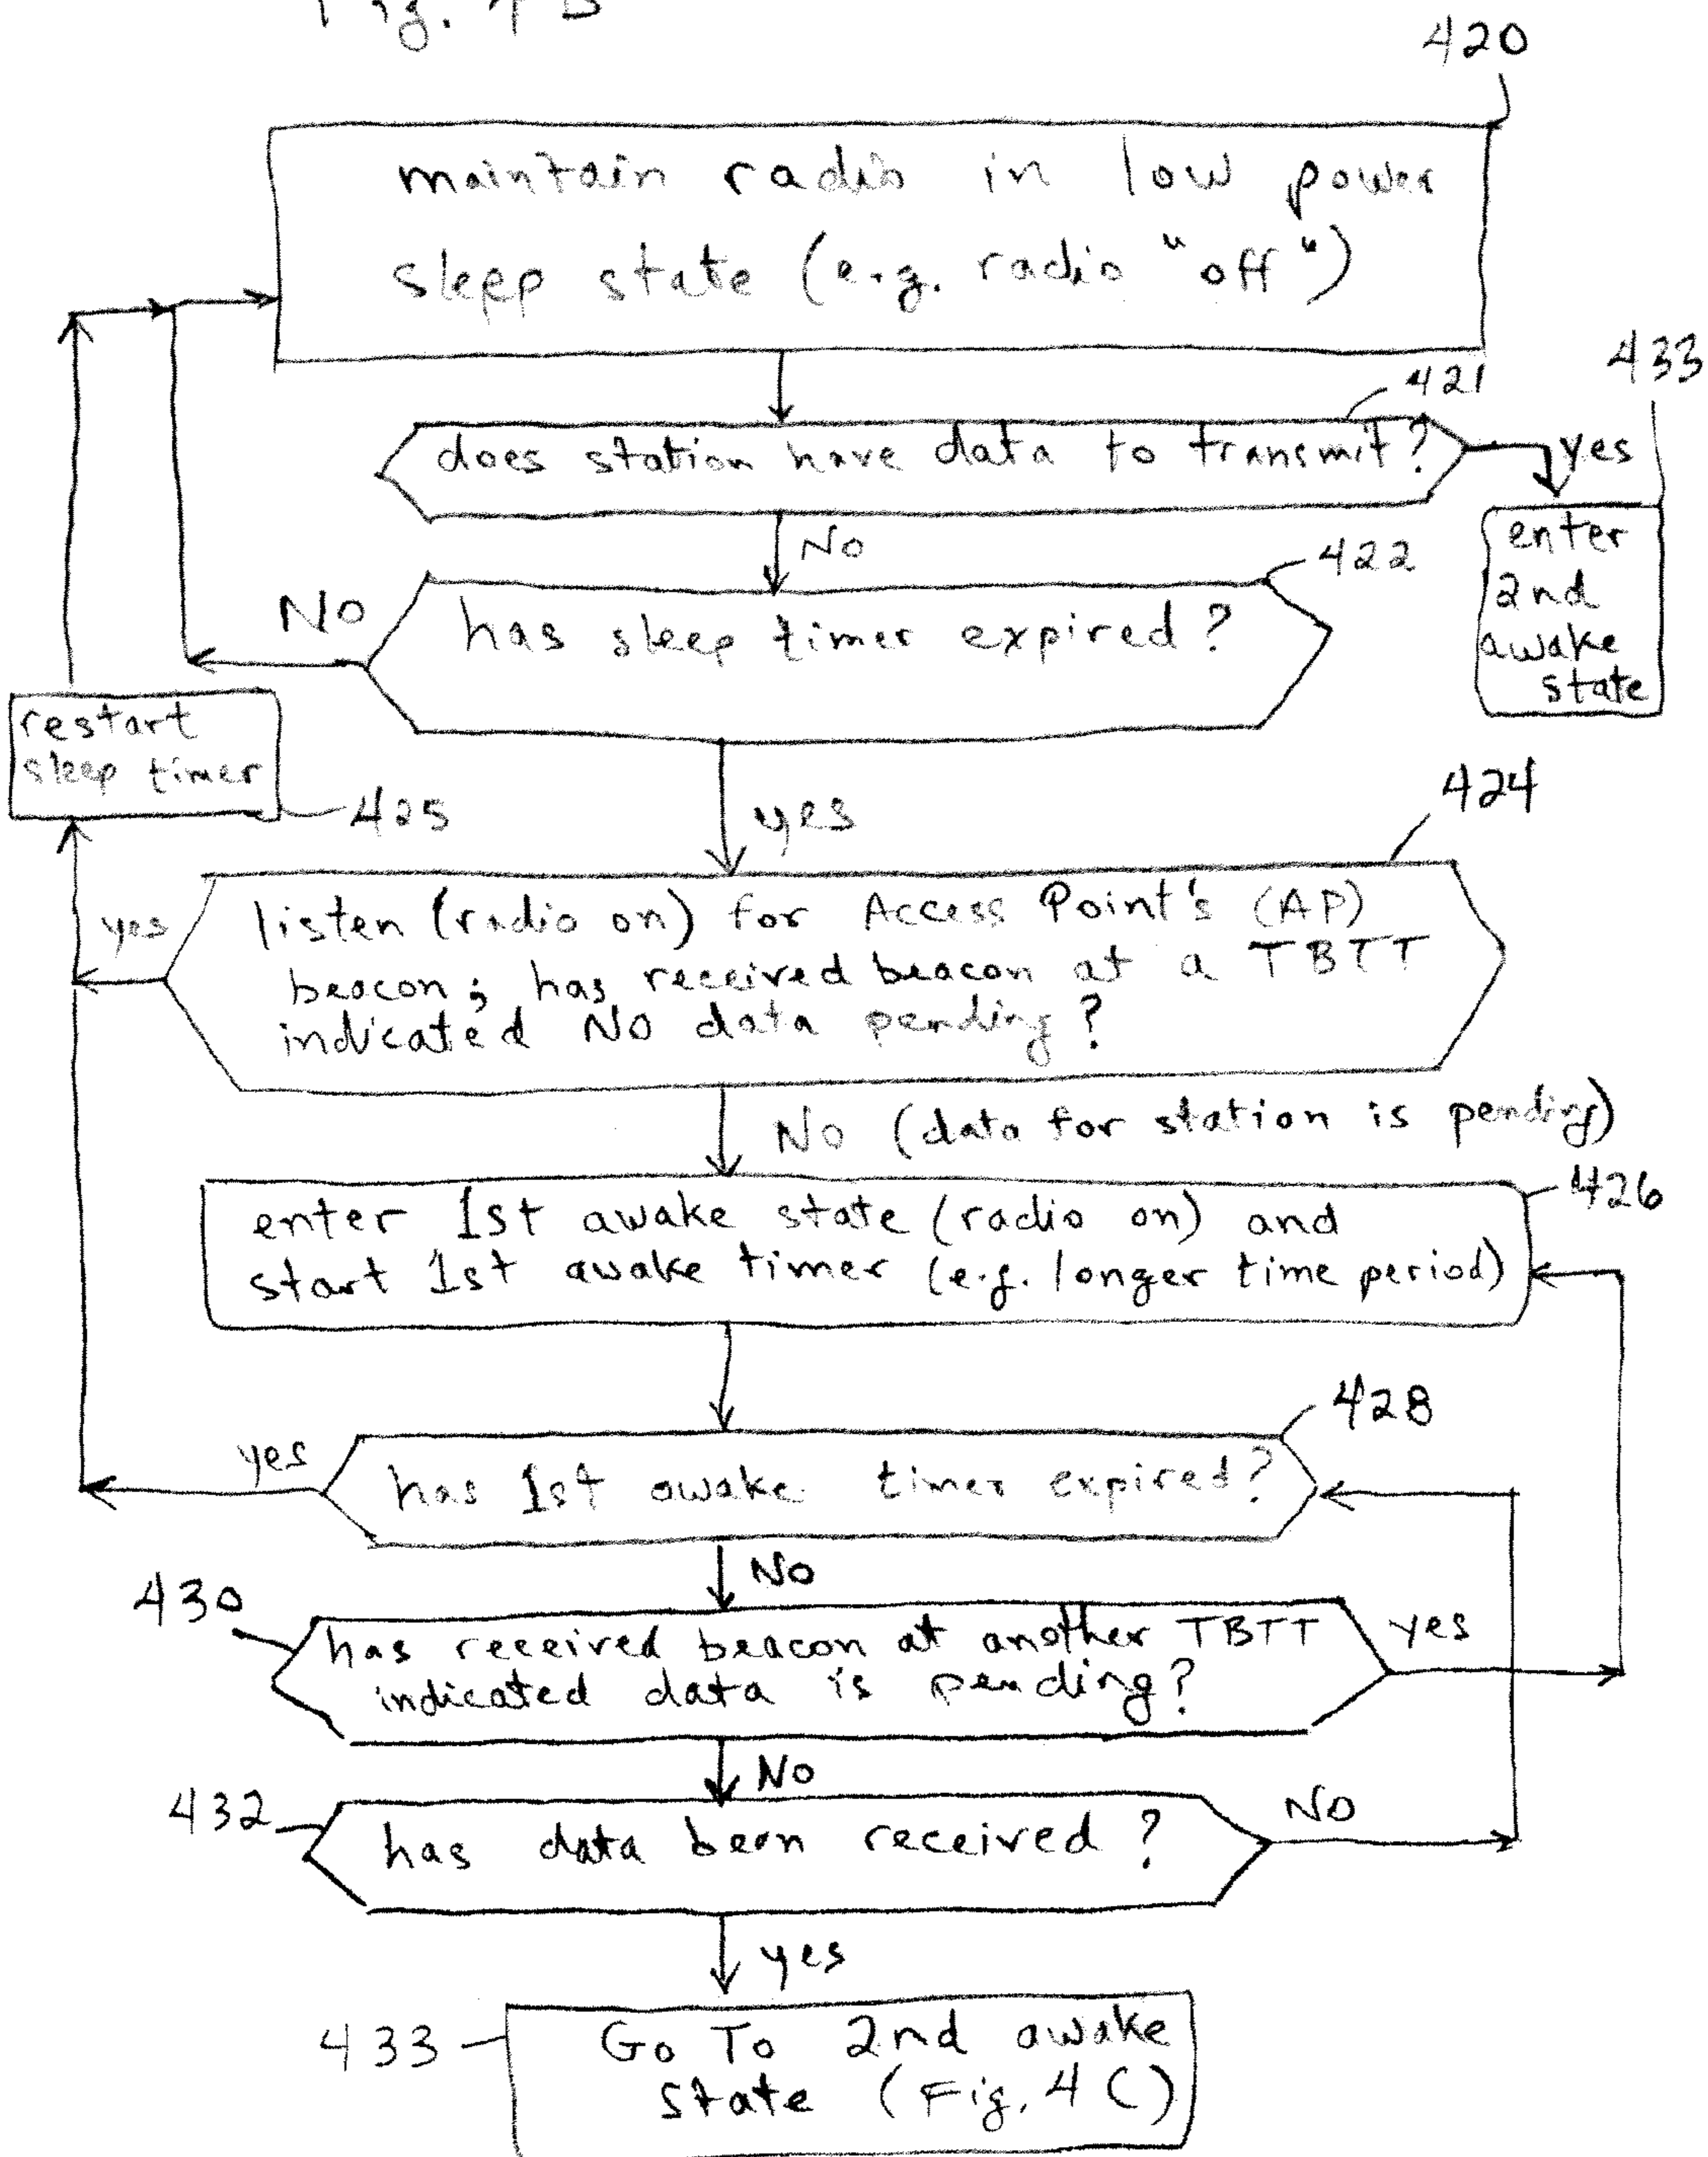 Fig. 4B
420
maintain radio in low power
sleep state (e.g. radio "off")
433
421
does station have data to transmit?
yes
enter
2nd
awake
state
No
422
has sleep timer expired?
No
restart
sleep timer
425
yes
424
listen (radio on) for Access Point's (AP)
beacon; has received beacon at a TBTT
indicated NO data pending?
yes
No (data for station is pending)
426
enter 1st awake state (radio on) and
start 1st awake timer (e.g. longer time period)
428
has 1st awake timer expired?
yes
No
430
has received beacon at another TBTT
indicated data is pending?
yes
No
432
has data been received?
No
yes
433
Go To 2nd awake
state (Fig. 4C)